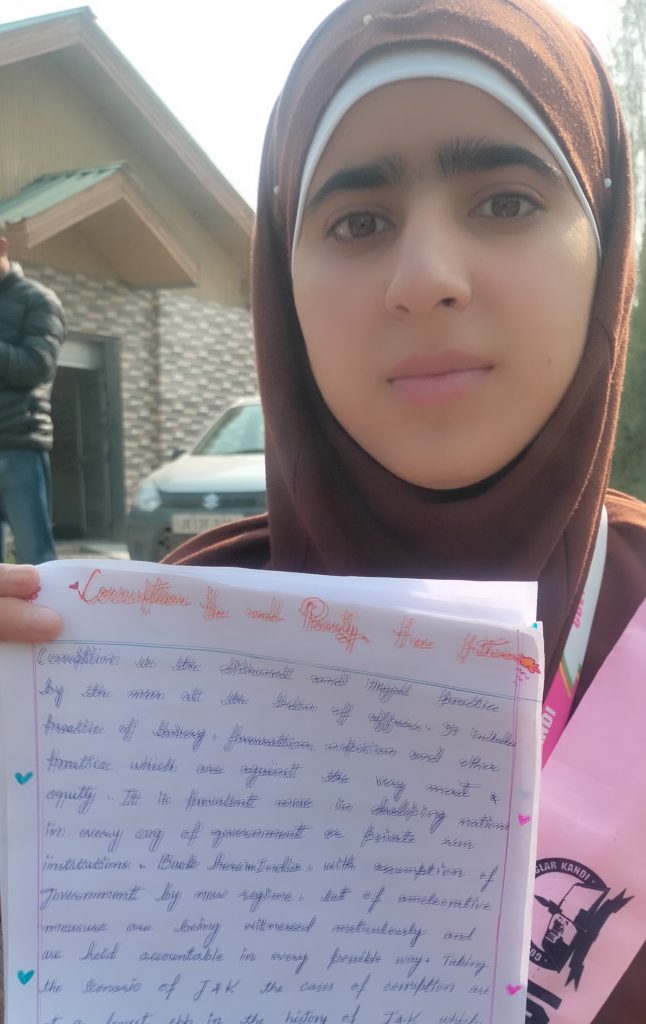 Corruption free and Poverty free
Corruption is the dishonest and illegal practice
by the man at the helm of offices. It includes
Practice of bribery, favouratism, nepotism and other
Practice which are against the very merit &
equity. It is prevalent more in developing nations
in every org of government or private run
institutions. Back here in India, with assumption of
Government by new regime, lot of ameliorative
measures are being witnessed meticulously and
are held accountable in every possible way. Taking
the scenario of J&K the cases of corruption are
at a lowest ebb in the history of J&K which
GLAR KANDI